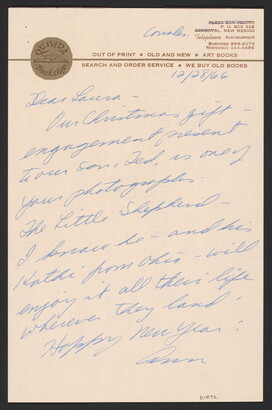 Corrales
PARKE/SAN-FELIPO
P. O. BOX 326
SANDOVAL, NEW MEXICO
Telephone ALBUQUERQUE
BUSINESS
RESIDENCE
Bookshop
OUT OF PRINT • OLD AND NEW • ART BOOKS
SEARCH AND ORDER SERVICE • WE BUY OLD BOOKS
12/28/66
Dear Laura -
Our Christmas gift -
engagement present -
to our son, Ted, is one of
your photographs.
The Little Shepherd -
I know he - and his
Kathi from Ohio - will
enjoy it all their life
wherever they land!
Happy New Year!
Ann